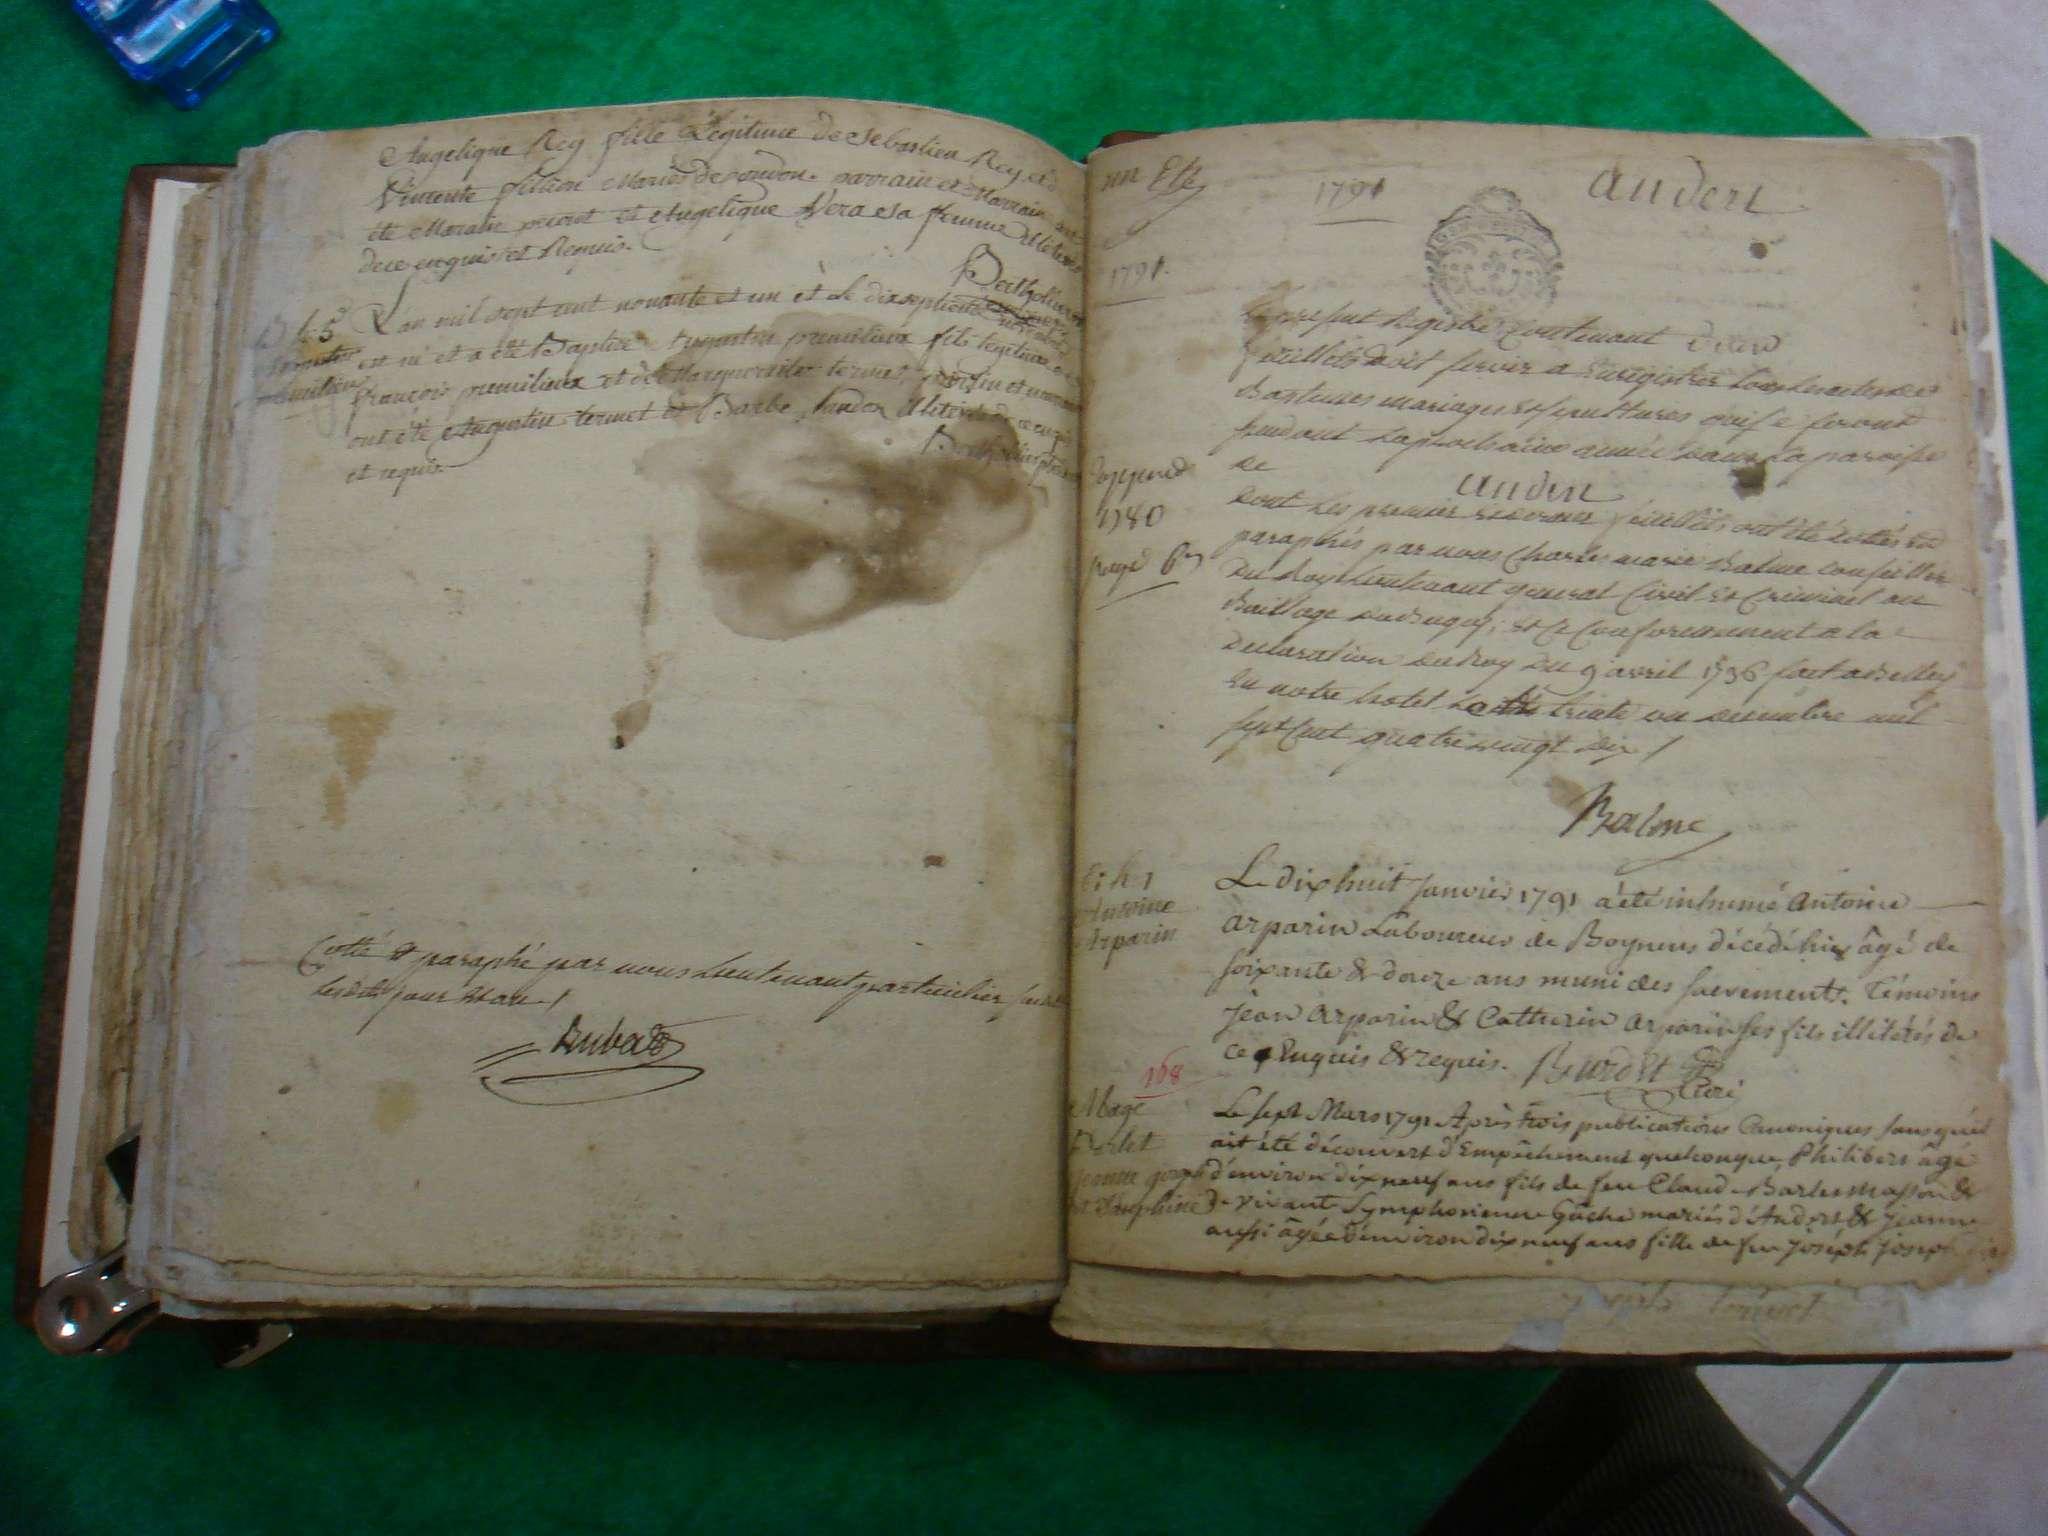 Angelique Rey fille Légitime de Sebastien Rey et de
Vincente fillion Mariés de parrain et Marraine ont
été et Angelique Vera sa femme illiteres
de ce enquis et Requis.
Bertholier
B. t. 5e L'an mil sept cent nonante et un et le dixseptieme
est né et a été Baptisé Augustin premilieux fils legitime
françois premilieux et de Marguerite termet, parrain et marraine
ont été Augustin termet et Barbe illiterés de ce enquis
et requis.
Cotté & paraphé par nous Lieutenant particulier
1791
andert
1791.
Le present Registre Contenant deux
feuillets doit servir a Enregistrer tous les actes de
Baptemes mariages et sepultures qui se feront
pendant La prochaine année dans La paroisse
de
andert
dont Les premier et dernier feuillets ont été cottés et
paraphés par nous Charles marie Balme conseiller
Du Roy Lieutenant general Civil et Criminel au
Bailliage du Bugey; et ce Conformement a la
Declaration du Roy du 9 avril 1736 fait a Belley
En notre hotel Le trente un decembre mil
sept Cent quatre vingt dix /
1780
Balme
Antoine
Arparin
Le dix huit Janvier 1791 a été inhumé Antoine
Arparin Laboureur de Boyneus décédé hier âgé de
soixante & douze ans muni des sacrements. Témoins
Jean Arparin & Catherin Arparin ses fils illitérés de
ce Enquis & requis. Burdet
Curé
168
Mage
Le sept Mars 1791 Après trois publications Canoniques sans qu'il
ait été découvert d'Empêchement quelconque, Philibert âgé
d'environ dix neuf ans fils de feu Claude Barlet Masson &
de vivante Symphorienne Gache mariés d'Andert & Jeanne
aussi âgée d'environ dix neuf ans fille de feu Joseph Joseph